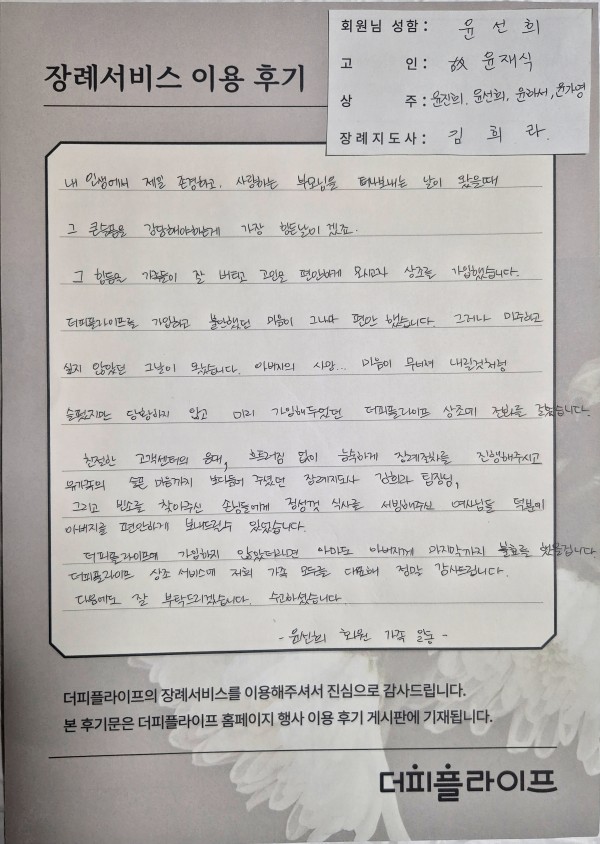 장례서비스 이용 후기
회원님 성함: 윤선희
고 인: 故 윤재식
상 주: 윤진희, 윤선희, 윤라서, 윤가영
장례지도사: 김희라.
내 인생에서 제일 존경하고, 사랑하는 부모님을 떠나보내는 날이 왔을때
그 큰슬픔을 감당해야하는게 가장 힘든날이겠죠.
그 힘듦을 가족들이 잘 버티고 고인을 편안하게 모시고자 상조를 가입했습니다.
더피플라이프를 가입하고 불안했던 마음이 그나마 편안했습니다. 그러나 마주하고
싶지 않았던 그날이 왔습니다. 아버지의 사망... 마음이 무너져 내릴것처럼
슬펐지만 당황하지 않고 미리 가입해두었던 더피플라이프 상조에 전화를 걸었습니다.
친절한 고객센터의 응대, 흐트러짐 없이 능숙하게 장례절차를 진행해주시고
유가족의 슬픈 마음까지 보다듬어 주셨던 장례지도사 김희라 팀장님,
그리고 빈소를 찾아주신 손님들에게 정성껏 식사를 서빙해주신 여사님들 덕분에
아버지를 편안하게 보내드릴수 있었습니다.
더피플라이프에 가입하지 않았더라면 아마도 아버지께 마지막까지 불효를 했을겁니다.
더피플라이프 상조 서비스에 저희 가족 모두를 대표해 정말 감사드립니다.
다음에도 잘 부탁드리겠습니다. 수고하셨습니다.
- 윤선희 회원 가족 일동 -
더피플라이프의 장례서비스를 이용해주셔서 진심으로 감사드립니다.
본 후기문은 더피플라이프 홈페이지 행사 이용 후기 게시판에 기재됩니다.
더피플라이프